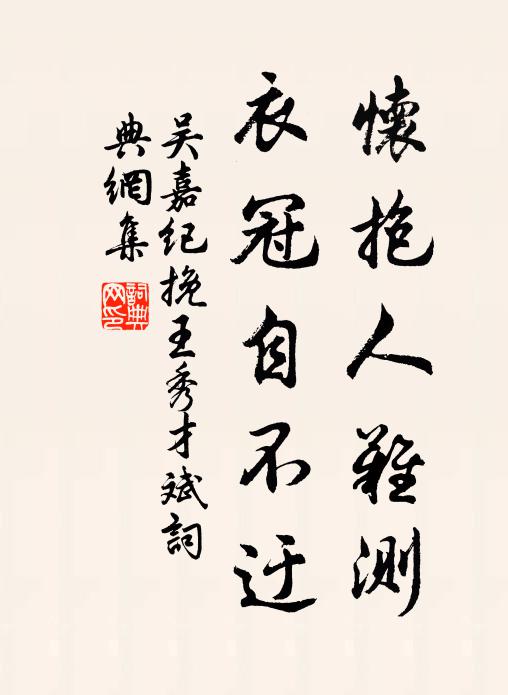 懷抱人難測
衣冠自不迂
吴嘉紀挽王秀才斌詞
典網集
詞典
网印